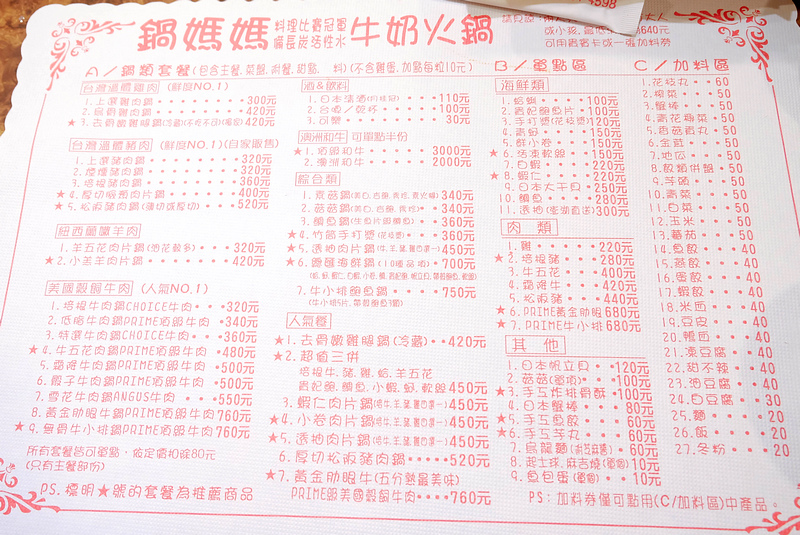 鍋媽媽 料理比賽冠軍 備長炭活性水 牛奶火鍋
4598
640元
可用貴賓卡或一張加料券
A/鍋類套餐(包含主餐、菜盤、附餐、甜點、 料)(不含雞蛋、加點每粒10元)
台灣溫體雞肉 (鮮度NO.1)
1.上選雞肉鍋・・・・・・・・300元
2.烏骨雞肉鍋・・・・・・・・420元
★3.去骨嫩雞腿鍋(冷藏)(不吃不可)(獨家)420元
台灣溫體豬肉 (鮮度NO.1)(自家販售)
1.上選豬肉鍋・・・・・・・・320元
2.煙燻豬肉鍋・・・・・・・・320元
3.培根豬肉鍋・・・・・・・・360元
★4.厚切蝦蒟肉片鍋・・・・・400元
★5.松阪豬肉鍋(薄切或厚切)520元
紐西蘭羔羊肉
1.羊五花肉片鍋(油花較多)・・・320元
★2.小羔羊肉片鍋・・・・・・420元
美國穀飼牛肉 (人氣NO.1)
1.培根牛肉鍋CHOICE牛肉・・・320元
2.低脂牛肉鍋PRIME頂級牛肉・340元
3.特選牛肉鍋CHOICE牛肉・・・360元
★4.牛五花肉鍋PRIME頂級牛肉・480元
5.霜降牛肉鍋PRIME頂級牛肉・500元
6.骰子牛肉鍋PRIME頂級牛肉・500元
7.雪花牛肉鍋ANGUS牛肉・・・550元
8.黃金肋眼牛鍋PRIME頂級牛肉760元
★9.無骨牛小排鍋PRIME頂級牛肉760元
所有套餐皆可單點,依定價扣除80元
(只有主餐部份)
PS.標明★號的套餐為推薦商品
酒&飲料
1.日本清酒(月桂冠)・・・110元
2.台啤/乾杯・・・・100元
3.可樂・・・・・・・・30元
澳洲和牛 可單點半份
★1.頂級和牛・・・・・3000元
2.澳洲和牛・・・・・2000元
綜合類
340元
340元
3.鯛魚鍋・・360元
★4.竹筒手打漿(花枝漿)・・・360元
★5.透抽肉片鍋(牛、羊、豬、雞四選一)450元
★6.豐匯海鮮鍋(10種品項)・・・700元
7.牛小排鮑魚鍋・・・・・750元
(牛小排5片、帶殼鮑魚3顆)
人氣餐
★1.去骨嫩雞腿鍋(冷藏)・・420元
★2.超值三拼
培根牛、豬、雞、蛤、羊五花
貴妃鮑、鯛魚、小蝦、蚵、軟絲450元
3.蝦仁肉片鍋(培牛、羊、豬、雞四選一)450元
★4.小卷肉片鍋(培牛、羊、豬、雞四選一)450元
★5.透抽肉片鍋(培牛、羊、豬、雞四選一)450元
6.厚切松阪豬肉鍋・・・・520元
★7.黃金肋眼牛(五分熟最美味)
PRIME級美國穀飼牛肉・・・・760元
B/單點區
海鮮類
1.蛤蜊・・・・・・100元
2.貴妃鮑魚片・・100元
3.手打漿(花枝漿)120元
4.青蚵・・・・・150元
5.鮮小卷・・・・150元
★6.活凍軟絲・・150元
7.白蝦・・・・・220元
★8.蝦仁・・・・220元
9.日本大干貝・・250元
10.鯛魚・・・・280元
11.透抽(澎湖直送)300元
肉 類
1.雞・・・・・・220元
★2.培根豬・・・280元
3.牛五花・・・・400元
4.霜降牛・・・・420元
5.松阪豬・・・・440元
★6.PRIME黃金肋眼680元
★7.PRIME牛小排680元
其 他
1.日本帆立貝・・120元
2.菇菇(單項)・・100元
★3.手工炸排骨酥・100元
4.日本蟹棒・・・80元
★5.手工魚餃・・60元
★6.手工芋丸・・60元
7.烏龍麵(附芝麻醬)・60元
8.起士球、麻吉燒(單個)10元
9.魚包蛋(單個)・・10元
C/加料區
1.花枝丸・・60
2.榨菜・・・50
3.蟹棒・・・50
4.青花椰菜・50
5.香菇貢丸・50
6.金菇・・・50
7.地瓜・・・50
8.菇類拼盤・50
9.芋頭・・・50
10.青菜・・・50
11.白菜・・・50
12.玉米・・・50
13.蕃茄・・・50
14.魚餃・・・40
15.燕餃・・・40
16.蛋餃・・・40
17.蝦餃・・・40
18.米血・・・40
19.豆皮・・・40
20.鴨血・・・40
21.凍豆腐・・40
22.甜不辣・・40
23.油豆腐・・40
24.白豆腐・・30
25.麵・・・・20
26.飯・・・・20
27.冬粉・・・20
PS:加料券僅可點用(C/加料區)中產品。